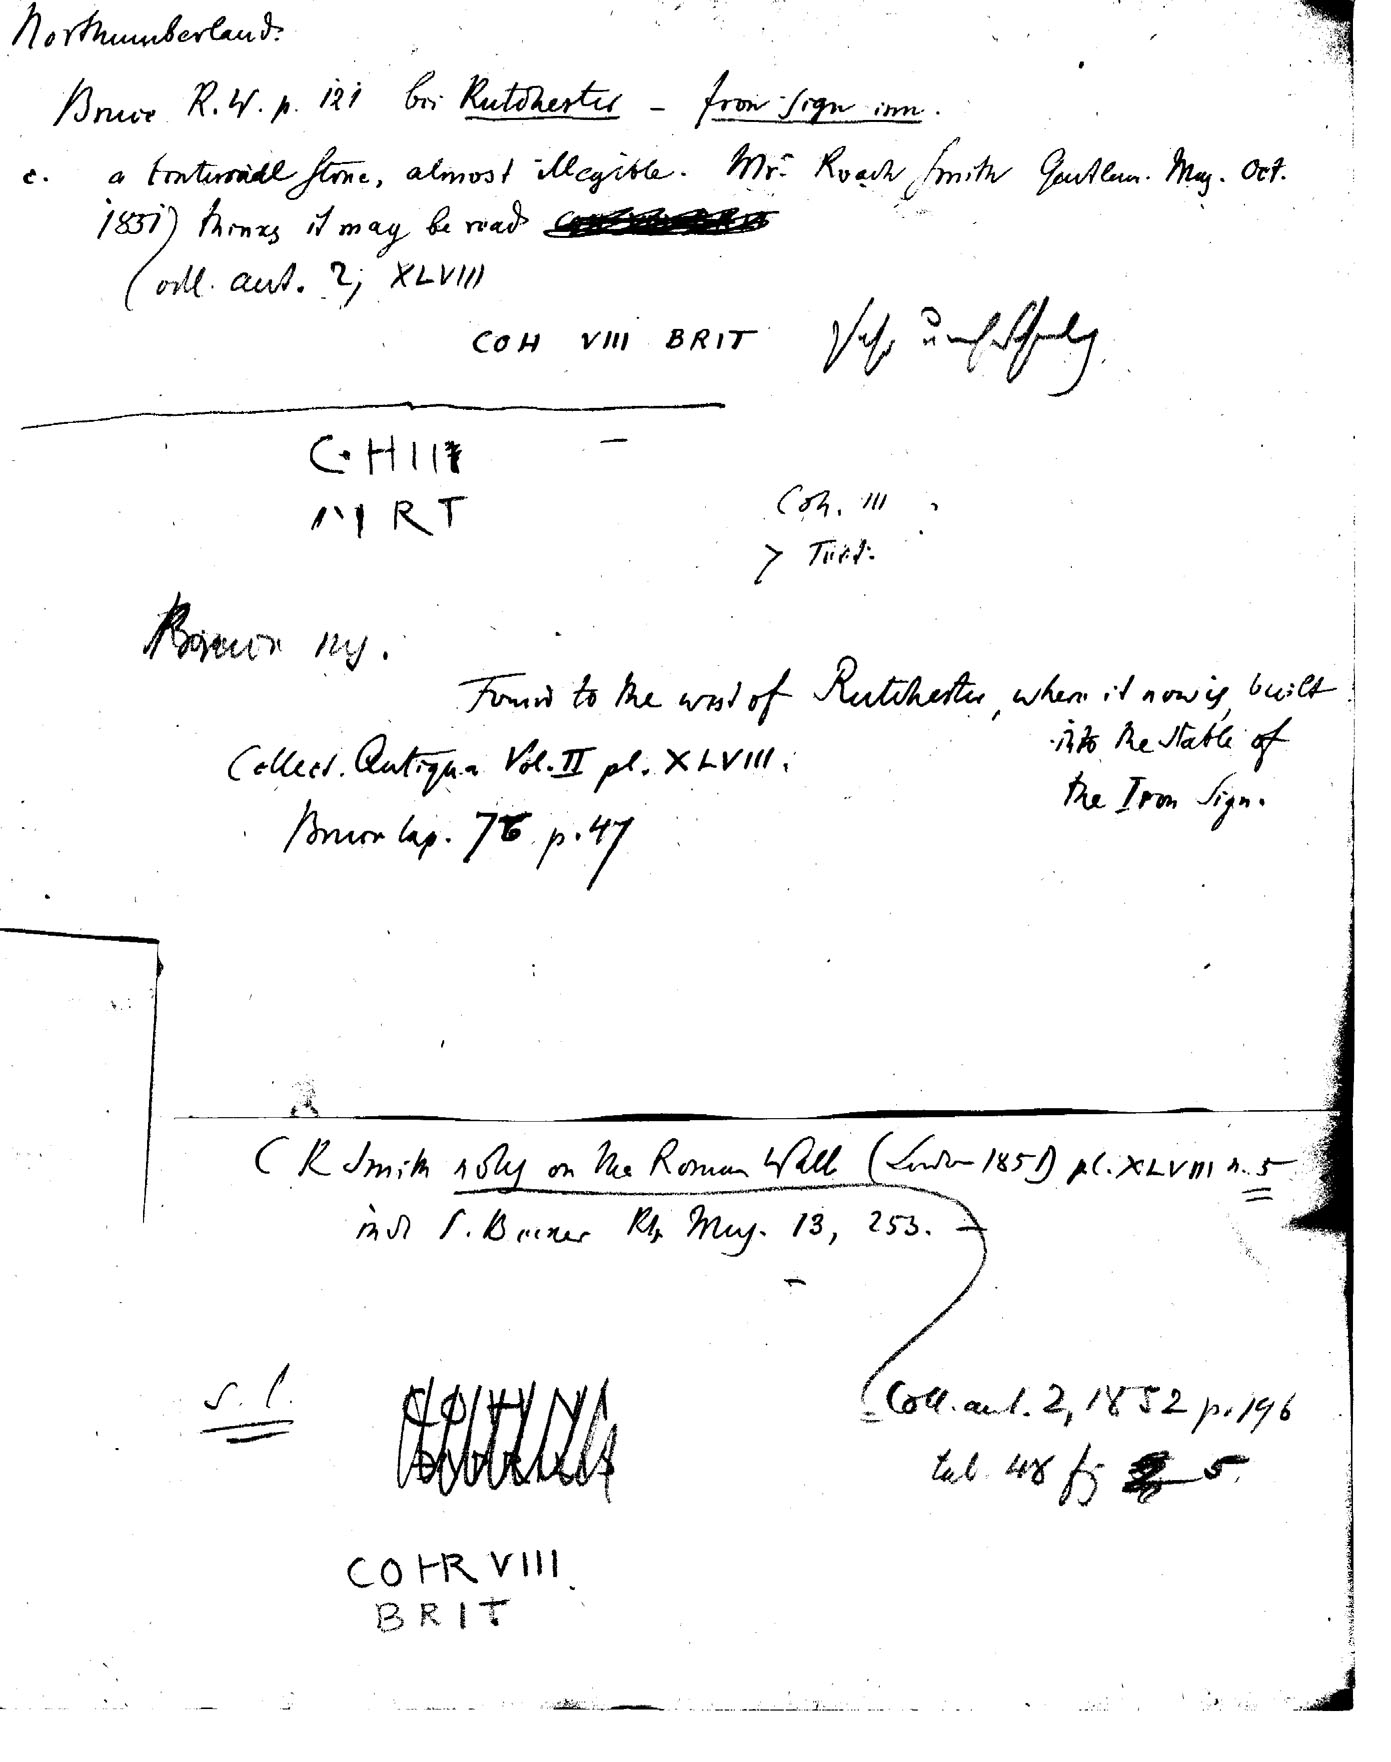 Northumberland.
Bruce R.W. p. 121 bei Rutchester – Iron Sign inn.
c. a centurial stone, almost illegible. Mr. Roach Smith Gentlem. Mag. Oct.
1851) thinks it may be read
(coll. ant. 2, XLVIII
COH VIII BRIT
COH III
RT
Coh. III
> Turt.
Bruce ms.
Found to the west of Rutchester, where it now is, built
into the stable of
the Iron Sign.
Collect. Antiqua Vol. II pl. XLVIII.
Bruce lap. 76 p. 47
C R Smith notes on the Roman Wall (London 1851) pl. XLVIII n. 5
ind J. Becker Rh. Mus. 13, 253. –
s. l.
Coll. ant. 2, 1852 p. 196
tab. 48 fig 5.
COHR VIII
BRIT